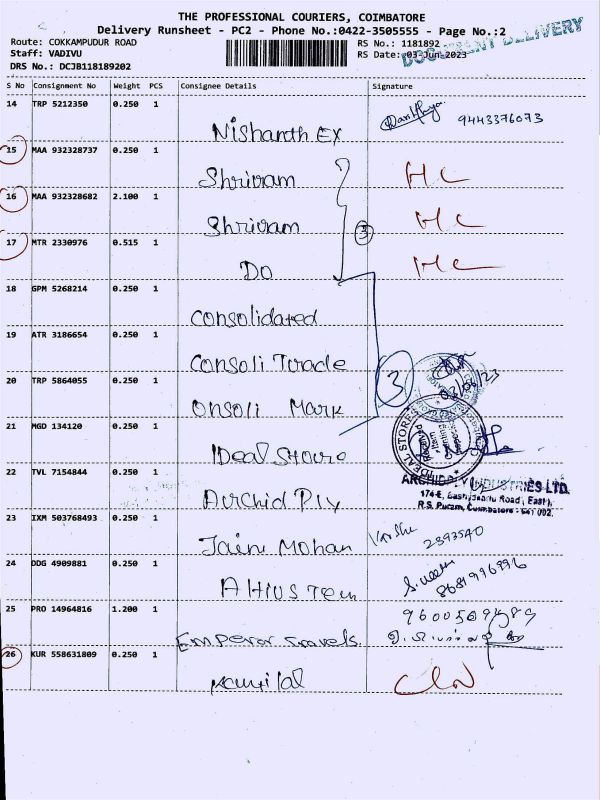 THE PROFESSIONAL COURIERS, COIMBATORE
Delivery Runsheet - PC2 - Phone No.:0422-3505555 - Page No.:2
Route: COKKAMPUDUR ROAD
RS No.: 1181892
DOCUMENT DELIVERY
Staff: VADIVU
RS Date: 03-Jun-2023
DRS No.: DCJB118189202
S No Consignment No Weight PCS Consignee Details Signature
14 TRP 5212350 0.250 1
Nishanth Ex
9443376073
15 MAA 932328737 0.250 1
Shriram
HC
16 MAA 932328682 2.100 1
Shriram
HC
3
17 MTR 2330976 0.515 1
Do
HC
18 GPM 5268214 0.250 1
Consolidated
19 ATR 3186654 0.250 1
Consoli Trade
3
20 TRP 5864055 0.250 1
Onsoli Mark
21 MGD 134120 0.250 1
Ideal Store
IDEAL STORES
22 TVL 7154844 0.250 1
Archid Ply
INDUSTRIES LTD.
R.S. Puram, Coimbatore - 641 002.
23 IXM 503768493 0.250 1
Jain Mohan
Varshu
2393540
24 DDG 4909881 0.250 1
Altius Tem
8681996996
25 PRO 14964816 1.200 1
Emperor travels
26 KUR 558631809 0.250 1